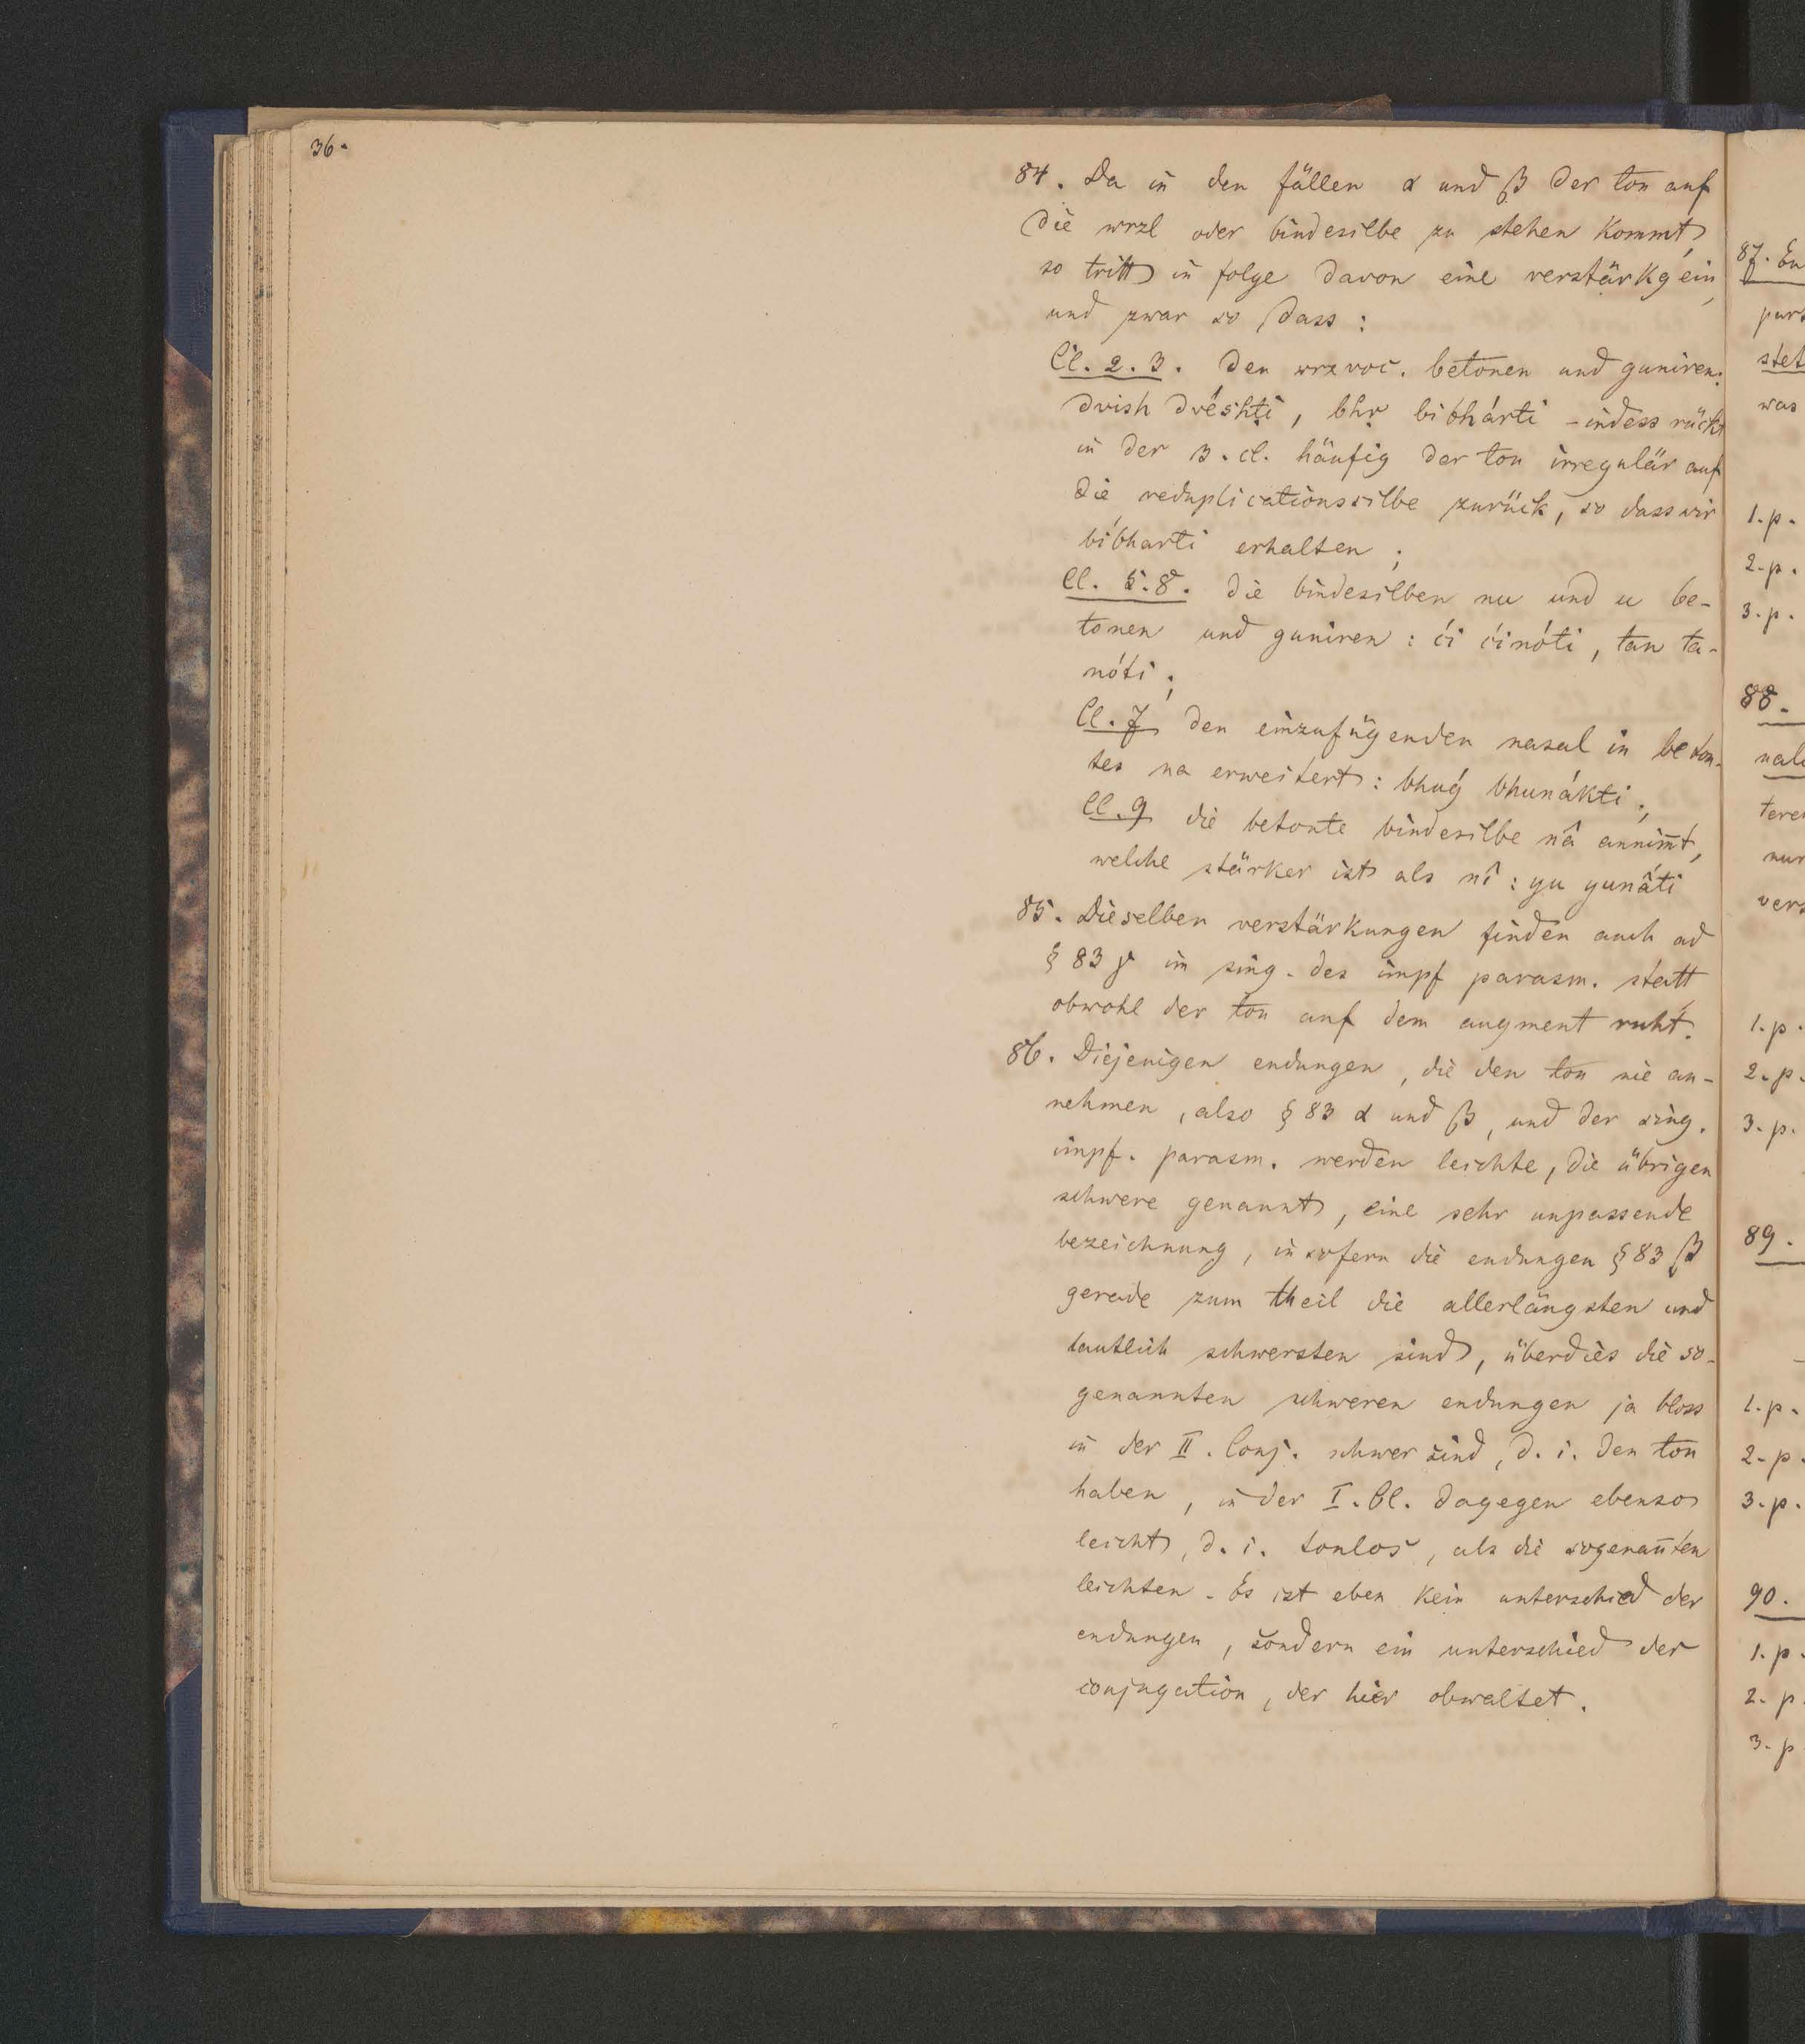 36.
84. Da in den fällen α und β der ton auf
die wrzl oder bindesilbe zu stehen kommt,
so tritt in folge davon eine verstärkg ein,
und zwar so dass:
Cl. 2. 3. den wrzvoc. betonen und guniren:
dvish dvéshṭi, bhṛ bibhárti - indess rückt
in der 3. cl. häufig der ton irregulär auf
die reduplicationssilbe zurück, so dass wir
bíbharti erhalten;
Cl. 5. 8. die bindesilben nu und u be-
tonen und guniren: ći ćinóti, tan ta-
nóti;
Cl. 7 den einzufügenden nasal in beton-
tes na erweitert: bhuǵ bhunákti;
Cl. 9 die betonte bindesilbe nâ annim̅t,
welche stärker ist als nî: yu yunâti
85. Dieselben verstärkungen finden auch ad
§ 83 γ im sing. des impf parasm. statt
obwohl der ton auf dem augment ruht.
86. Diejenigen endungen, die den ton nie an-
nehmen, also § 83 α und β, und der sing.
impf. parasm. werden leichte, die übrigen
schwere genannt, eine sehr unpassende
bezeichnung, in sofern die endungen § 83 β
gerade zum theil die allerlängsten und
lautlich schwersten sind, überdies die so-
genannten schweren endungen ja bloss
in der II. Conj. schwer sind, d. i. den ton
haben, in der I. Cl. dagegen ebenso
leicht, d. i. tonlos, als die sogenan̅ten
leichten. Es ist eben kein unterschied der
endungen, sondern ein unterschied der
conjugation, der hier obwaltet.
87. En
pars
stet
was
1. p.
2. p.
3. p.
88.
nale
teren
nur
vers
1. p.
2. p.
3. p.
89.
1. p.
2. p.
3. p.
90.
1. p.
2. p.
3. p